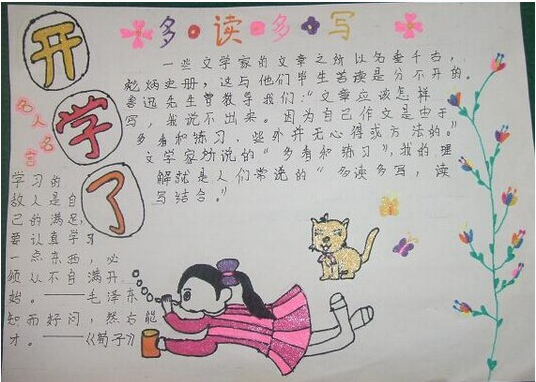 开学了
多·读·多·写
一些文学家的文章之所以名垂千古，
彪炳史册，这与他们毕生苦读是分不开的。
鲁迅先生曾教导我们：“文章应该怎样
写，我说不出来。因为自己作文是由于
多看和练习，些外并无心得或方法的。”
文学家所说的“多看和练习”，我的理
解就是人们常说的“多读多写，读
写结合。”
名人名言
学习的
故人是自
己的满足，
要认真学习
一点东西，必
须从不自满开
始。——毛泽东
知而好问，然右能
才。——《荀子》